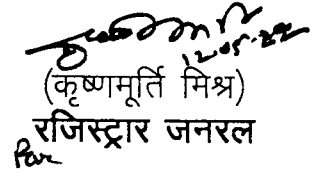 12.05.22
(कृष्णमूर्ति मिश्र)
रजिस्ट्रार जनरल